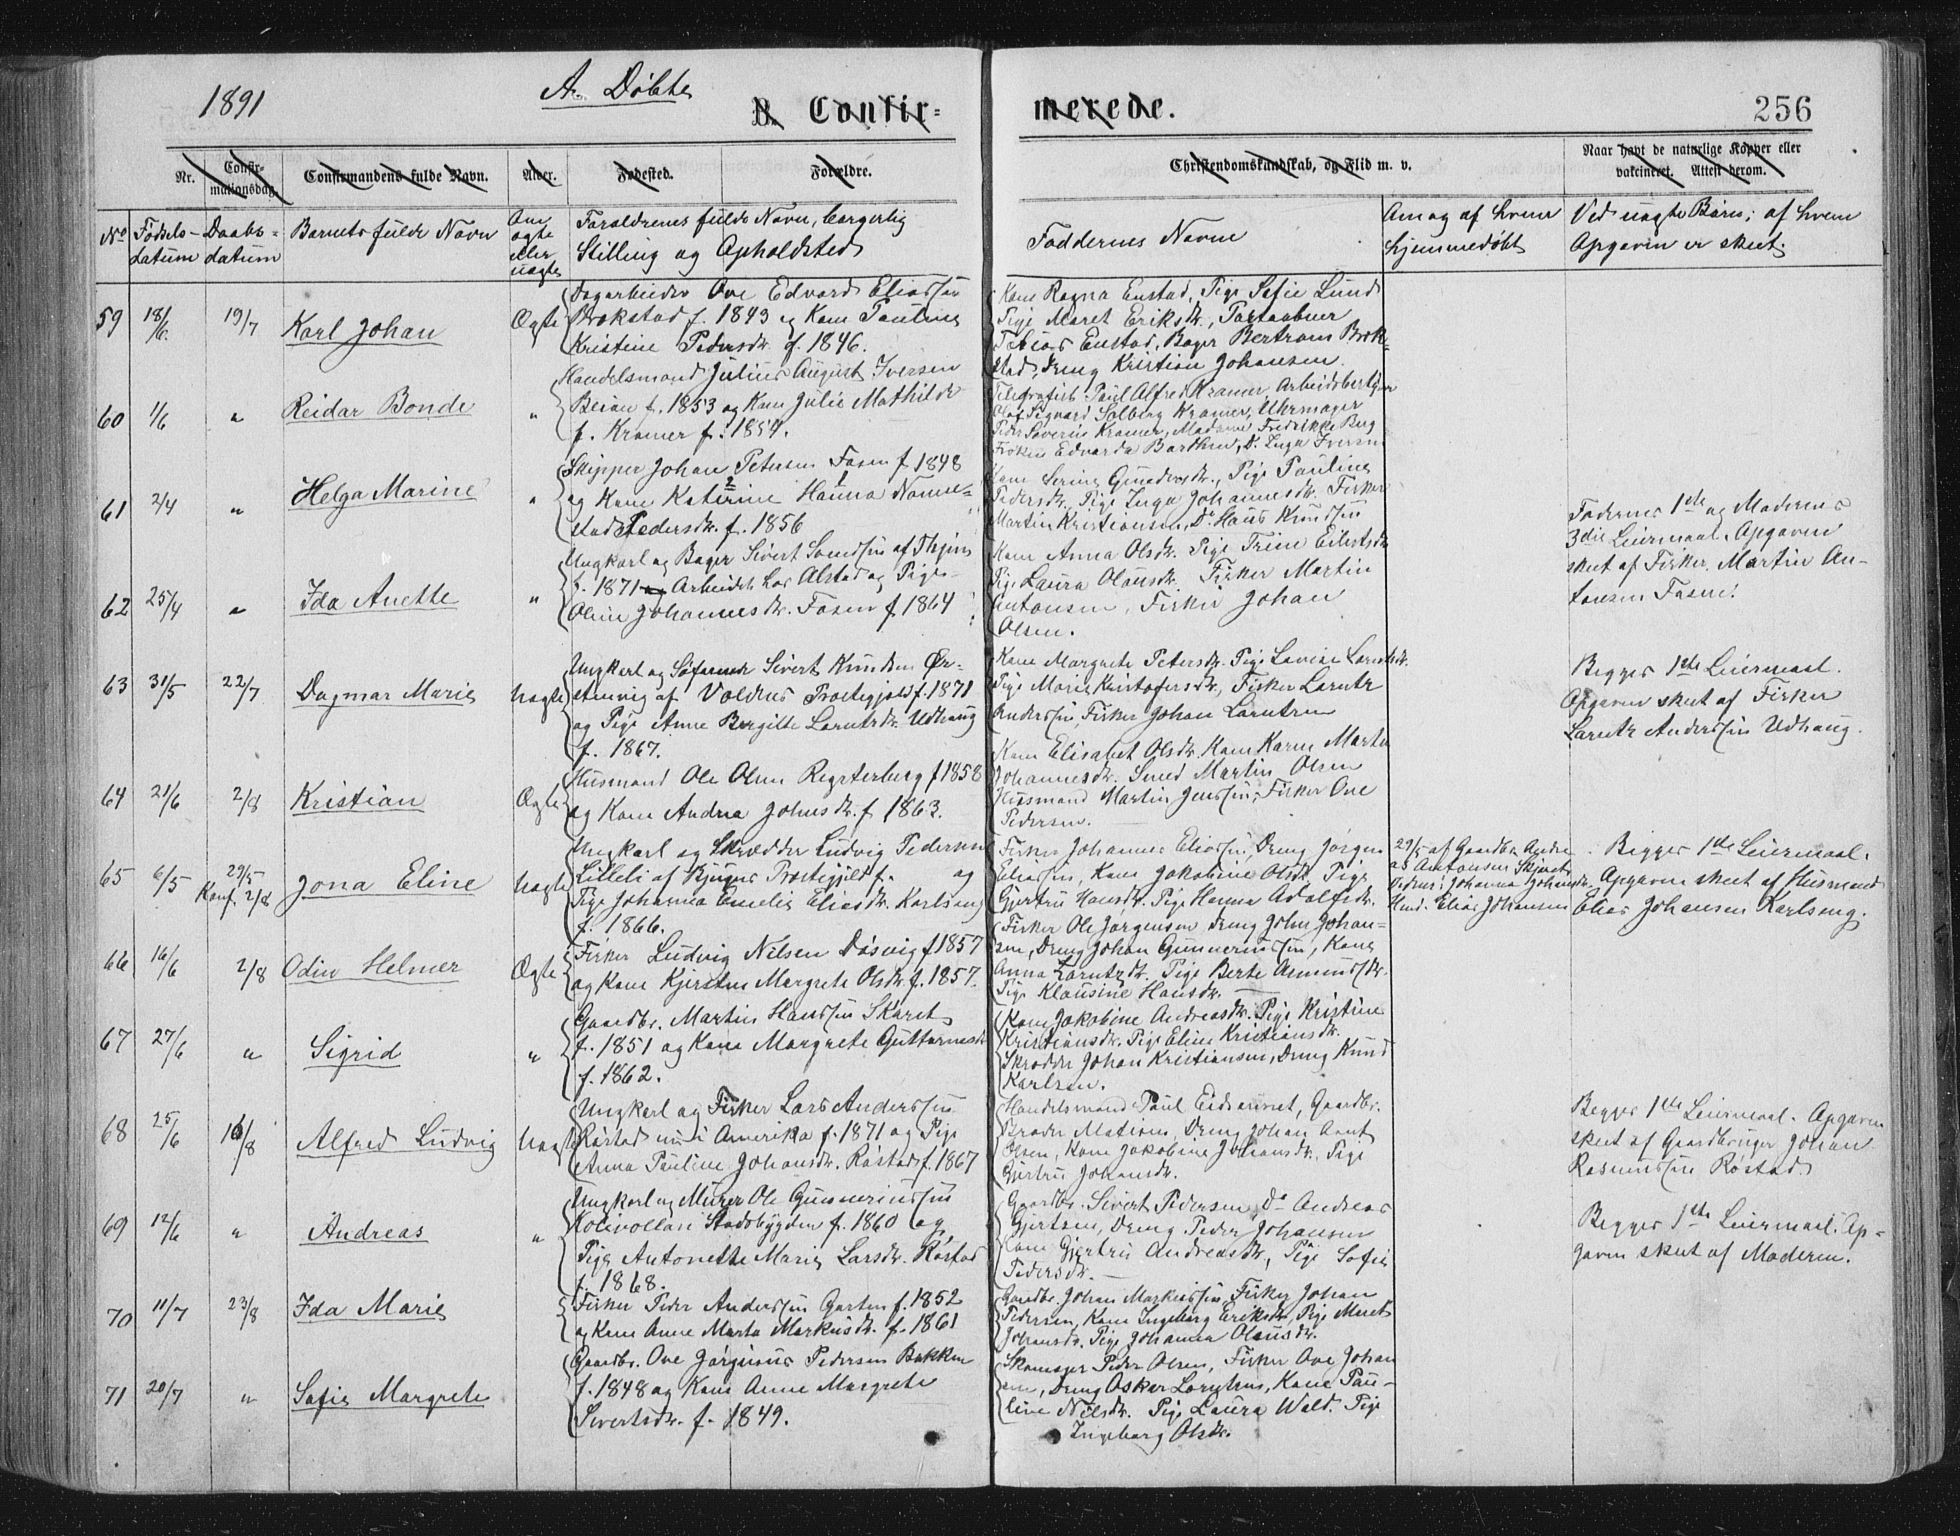 1891
A. Döbte
B. Confir=
merede.
256
Nr.
Confir-
mationsdag.
Confirmandens fulde Navn.
Alder.
Fødested.
Forældre.
Christendomskundskab, og Flid m. v.
Naar havt de naturlige Kopper eller
vakcineret. Attest derom.
No
Fødsels-
datum
Daabs=
datum
Barnets fulde Navn
Om
ægte
eller
uægte
Forældrenes fulde Navn, borgerlig
Stilling og Opholdsted
Faddernes Navne
Om og af hvem
hjemmedøbt
Ved uægte Børn; af hvem
Opgaven er skeet.
59 18/6 19/7 Karl Johan Ægte
Dagarbeider Ove Edvard Eliassen
Brokstad f. 1843 og Kone Pauline
Kristine Pedersdr. f. 1846.
Kone Ragna Enstad, Pige Sofie Lund
Pige Maret Eriksdr., Postaabner
Tobias Enstad, Bager Bertram Brok-
stad, Dreng Kristian Johansen
60 1/6 " Reidar Bonde "
Handelsmand Julius August Iversen
Beian f. 1853 og Kone Julie Mathilde
f. Kramer f. 1854.
Telegrafist Paul Alfred Kramer, Arbeidsbestyrer
Olaf Sigvard Solberg Kramer, Uhrmager
Peder Severin Kramer, Madame Fredrikke Berg
Frøken Edvarda Barthen, Do. Inga Iversen
61 2/4 " Helga Marine "
Skipper Johan Petersen Fosen f. 1848
og Kone Katerine Hanna Namse-
stad Pedersdr. f. 1856
Kone Serine Gundersdr., Pige Pauline
Pedersdr., Pige Inga Johannesdr. Fisker
Martin Kristiansen, Do. Hans Knudsen
62 25/4 " Ida Anette "
Ungkarl og Bager Sivert Sondsen af Thjem
f. 1871 og Arbeidet hos Alstad og Pige
Oline Johannesdr. Fosen f. 1864
Kone Anna Olsdr. Pige Trine Eilertsdr.
Pige Laura Olausdr. Fisker Martin
Antonsen, Fisker Johan
Olsen.
Faderens 1ste og Moderens
3die Leiermaal. Opgaven
skeet af Fisker, Martin An-
tonsen Fosen.
63 31/5 22/7 Dagmar Marie Uægte
Ungkarl og Søfarende Sivert Knudsen Ør-
stenvig af Voldens Præstegjeld f. 1871
og Pige Anne Bergitte Lorntsdr. Udhaug
f. 1867.
Kone Margrete Petersdr. Pige Lovise Lorntsdr.
Pige Marie Kristofersdr., Fisker Lorntz
Anderssen, Fisker Johan Lorntsen
Begges 1ste Leiermaal.
Opgaven skeet af Fisker
Lorntz Anderssen Udhaug.
64 21/6 2/8 Kristian Ægte
Husmand Ole Olsen Regsterberg f 1858
og Kone Andrea Johnsdr. f. 1863.
Kone Elisabet Olsdr. Kone Karen Marta
Johannesdr. Smed Martin Olsen
Husmand Martin Jenssen, Fisker Ove
Pedersen.
65 6/5 29/5
Konf. 2/8 Jona Eline Uægte
Ungkarl og Skrædder Ludvig Pedersen
Lilleli af Bjugns Præstegjeld f. og
Pige Johanna Emelie Eliasdr. Karlseng
f. 1866.
Fisker Johannes Eliassen, Dreng Jørgen
Eliassen, Kone Jakobine Olsdr. Pige
Gjertru Hansdr. Pige Hanna Adolfsdr.
29/5 af Gaardbr. Andre
as Antonsen
Johanna Johansdr.
Elias Johansen
Begges 1ste Leiermaal.
Opgaven skeet af Husmand
Elias Johansen Karlseng.
66 16/6 2/8 Odin Helmer Ægte
Fisker Ludvig Nilsen Døsvig f 1857
og Kone Kjersten Margrete Olsdr. f. 1857.
Fisker Ole Jørgensen Dreng John Johan-
sen, Dreng Johan Gunneriussen, Kone
Anna Lorntzdr. Pige Berte Asmundsdr.
Pige Klausine Hansdr.
67 27/6 " Sigrid "
Gaardbr. Martin Hanssen Skaret
f. 1851 og Kone Margrete Guttormsdr
f. 1862.
Kone Jakobine Andreasdr. Pige Kristine
Kristiansdr. Pige Eline Kristiansdr.
Skrædder Johan Kristiansen, Dreng Knud
Karlsen.
68 25/6 16/8 Alfred Ludvig Uægt
Ungkarl og Fisker Lars Anderssen
Røstad nu i Amerika f. 1871 og Pige
Anna Pauline Johansdr. Røstad f. 1867
Handelsmand Paul Eidsaunet, Gaardbr.
Broder Matias, Dreng Johan Arnt
Olsen, Kone Jakobine Johansdr., Pige
Gjertru Johansdr.
Begges 1ste Leiermaal. Opgaven
skeet af Gaardbruger Johan
Rasmussen Røstad
69 12/6 " Andreas "
Ungkarl og Murer Ole Gunneriussen
Kolsvollan i Stadsbygden f. 1860 og
Pige Antonette Marie Larsdr. Røstad
f. 1868.
Gaardbr. Sivert Pedersen Do Andreas
Gjertsen, Dreng Peder Johansen
Kone Gjertru Andreasdr., Pige Sofie
Pedersdr.
Begges 1ste Leiermaal. Op-
gaven skeet af Moderen.
70 11/7 23/8 Ida Marie
Fisker Peder Anderssen Garten f. 1852
og Kone Anne Marta Markusdr. f. 1861
Gaardbr. Johan Markussen, Fisker Johan
Pedersen, Kone Ingeborg Eriksdr., Pige Maret
Johansdr. Pige Johanna Olausdr.
71 20/7 " Sofie Margrete
Gaardbr. Ove Jørginus Pedersen Bakken
f. 1848 og Kone Anne Margrete
Sivertsdr. f. 1849.
Skomager Peder Olsen, Fisker Ove Johan
sen, Dreng Oskar Lorntsen, Kone Pau-
line Nilsdr. Pige Laura Wald. Pige
Ingeborg Olsdr.